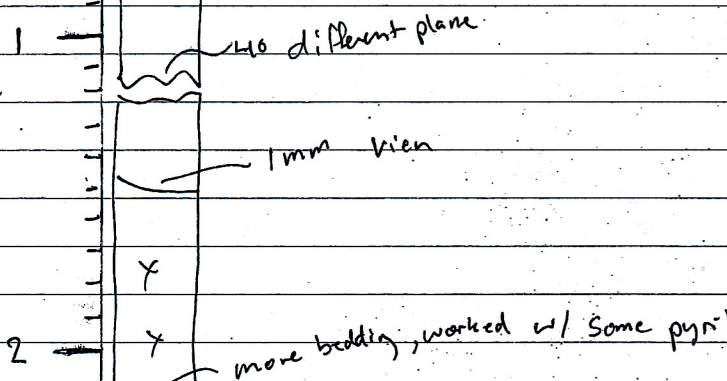 1
different plane
1mm vien
Y
Y
2
more bedding, worked w/ some